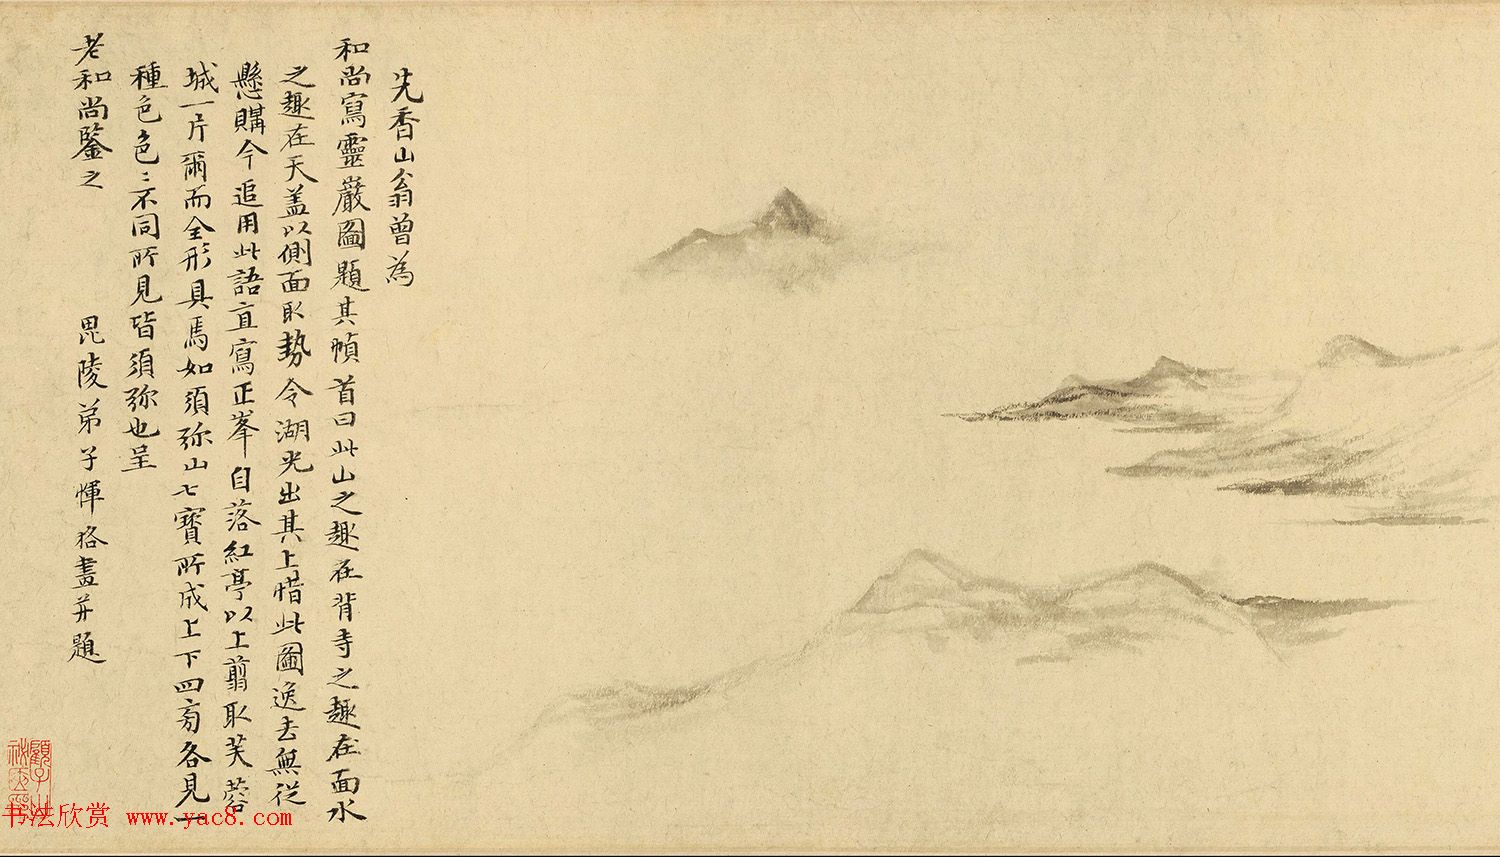 先香山翁曾為
和尚寫靈巖圖題其幀首曰此山之趣在背寺之趣在面水
之趣在天盖以側面取勢令湖光出其上惜此圖逸去無從
懸購今追用此語直寫正峯自落紅亭以上翦取芙蓉
城一片爾而全形具焉如須弥山七寶所成上下四旁各見一
種色色〻不同所見皆須弥也呈
老和尚鑒之 毘陵弟子惲格畫并題
书法欣赏 www.yac8.com